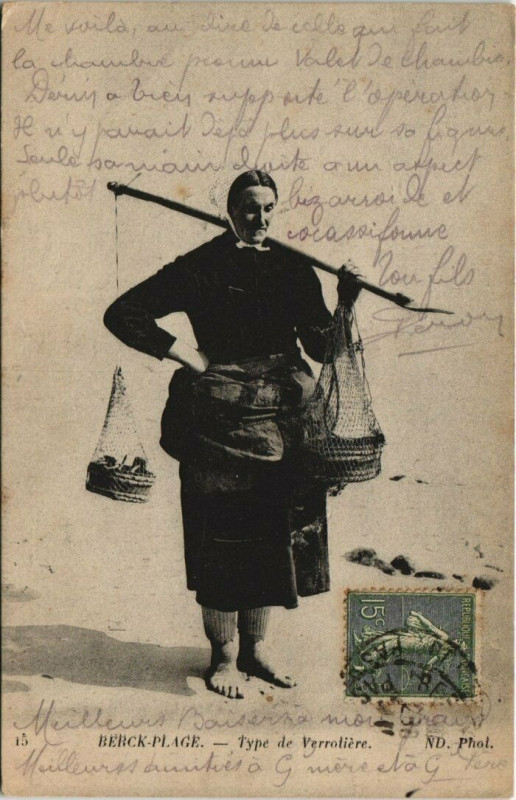 Me voilà, au dire de celle qui fait
la chambre promu valet de chambre.
Denis a bien supporté l'opération
Il n'y parait déjà plus sur sa figure,
Seule sa main droite a un aspect
plutôt bizarroïde et
cocassifonne
Ton fils
15c
REPUBLIQUE FRANÇAISE
Meilleurs Baisers à mon
15 BERCK-PLAGE. — Type de Verrotière. ND. Phot.
Meilleures amitiés à G mère et à G Père